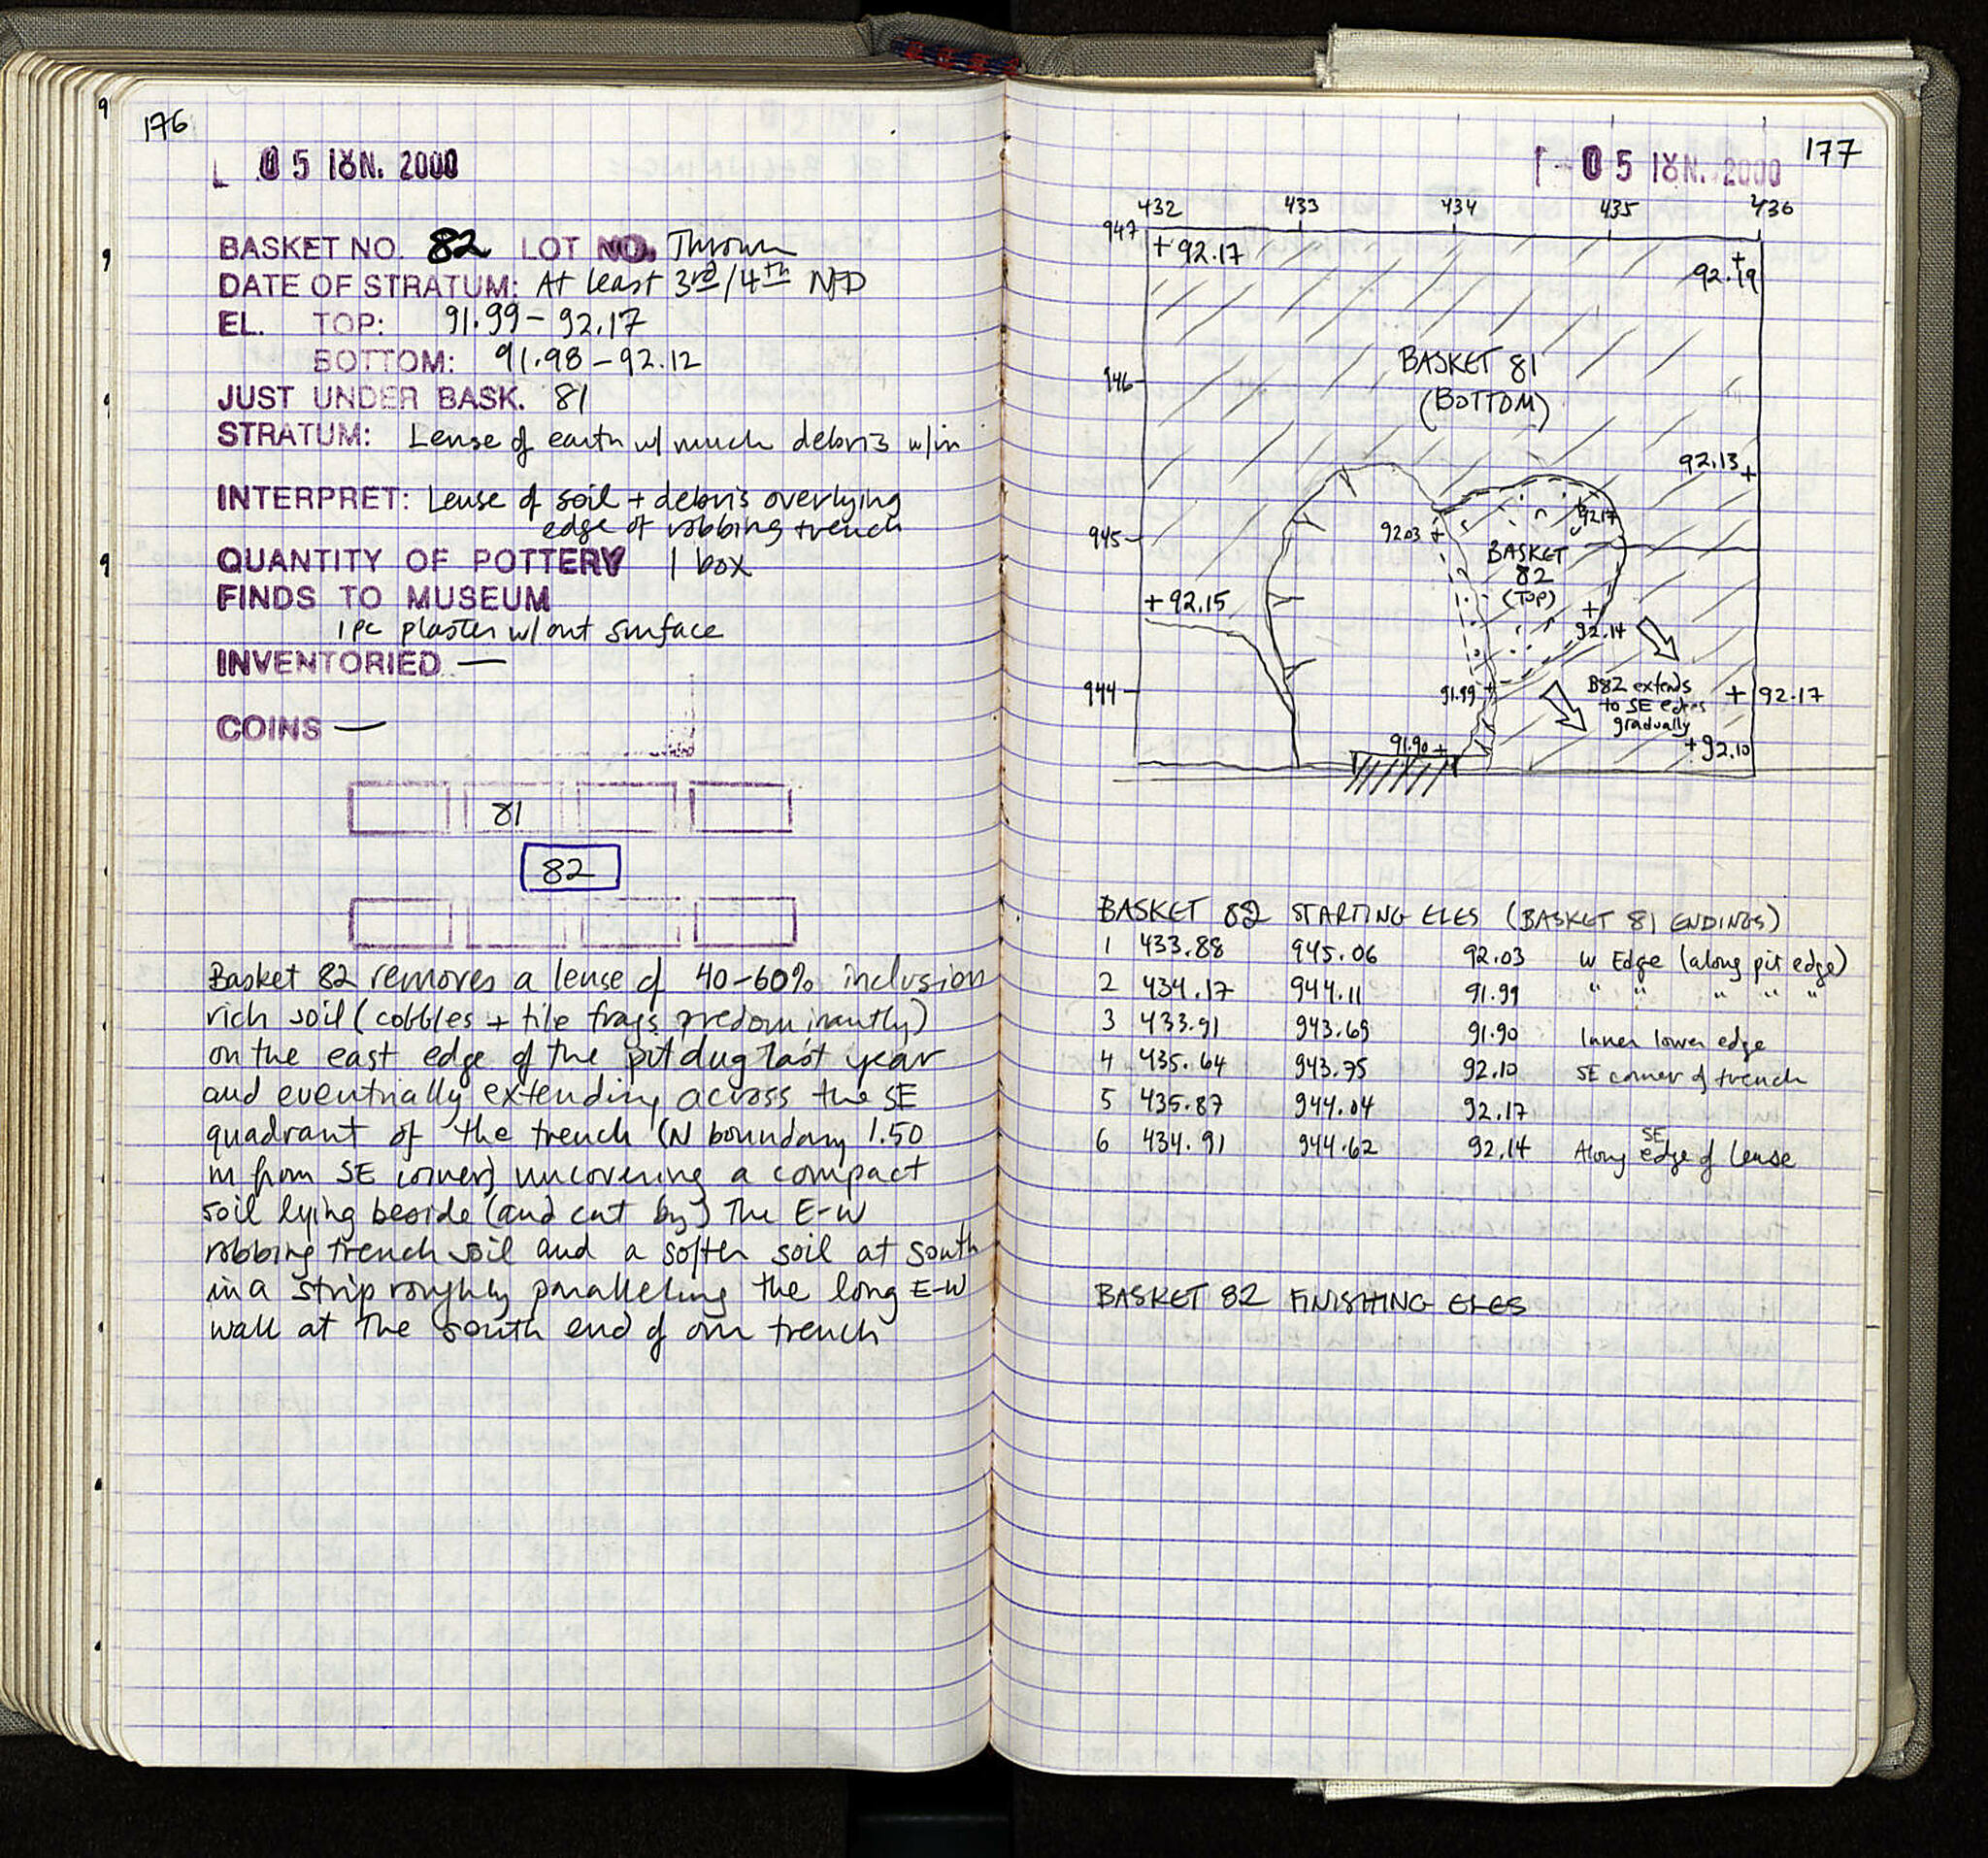 176
05 ΙΟΥΝ. 2000
BASKET NO. 82 LOT NO. Thrown
DATE OF STRATUM: At least 3rd/4th
EL. TOP: 91.99 - 92.17
BOTTOM: 91.98 - 92.12
JUST UNDER BASK. 81
STRATUM: Lense of earth w/ much debris w/in
INTERPRET: Lense of soil + debris overlying
edge of robbing trench
QUANTITY OF POTTERY 1 box
FINDS TO MUSEUM
1 pc plaster w/out surface
INVENTORIED —
COINS —
81
82
Basket 82 removes a lense of 40-60% inclusion
rich soil (cobbles + tile frags predominantly)
on the east edge of the pit dug last year
and eventually extending across the SE
quadrant of the trench (N boundary 1.50
m from SE corner) uncovering a compact
soil lying beside (and cut by) the E-W
robbing trench soil and a softer soil at south
in a strip roughly paralleling the long E-W
wall at the south end of our trench
177
05 ΙΟΥΝ. 2000
432 433 434 435 436
947
+ 92.17
+ 92.19
946
BASKET 81
(BOTTOM)
92.13 +
945
92.03 +
92.17
BASKET
82
(TOP)
+ 92.15
+ 92.14
944
91.99 +
B82 extends
to SE edges
gradually
+ 92.17
91.90 +
+ 92.10
BASKET 82 STARTING ELES (BASKET 81 ENDINGS)
1 433.88 945.06 92.03 W Edge (along pit edge)
2 434.17 944.11 91.99 " " " " "
3 433.91 943.69 91.90 Inner lower edge
4 435.64 943.75 92.10 SE corner of trench
5 435.87 944.04 92.17
6 434.91 944.62 92.14 Along SE edge of lense
BASKET 82 FINISHING ELES